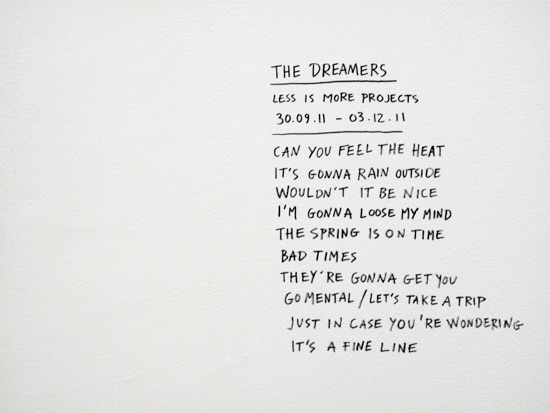 THE DREAMERS
LESS IS MORE PROJECTS
30.09.11 - 03.12.11
CAN YOU FEEL THE HEAT
IT'S GONNA RAIN OUTSIDE
WOULDN'T IT BE NICE
I'M GONNA LOOSE MY MIND
THE SPRING IS ON TIME
BAD TIMES
THEY'RE GONNA GET YOU
GO MENTAL / LET'S TAKE A TRIP
JUST IN CASE YOU'RE WONDERING
IT'S A FINE LINE